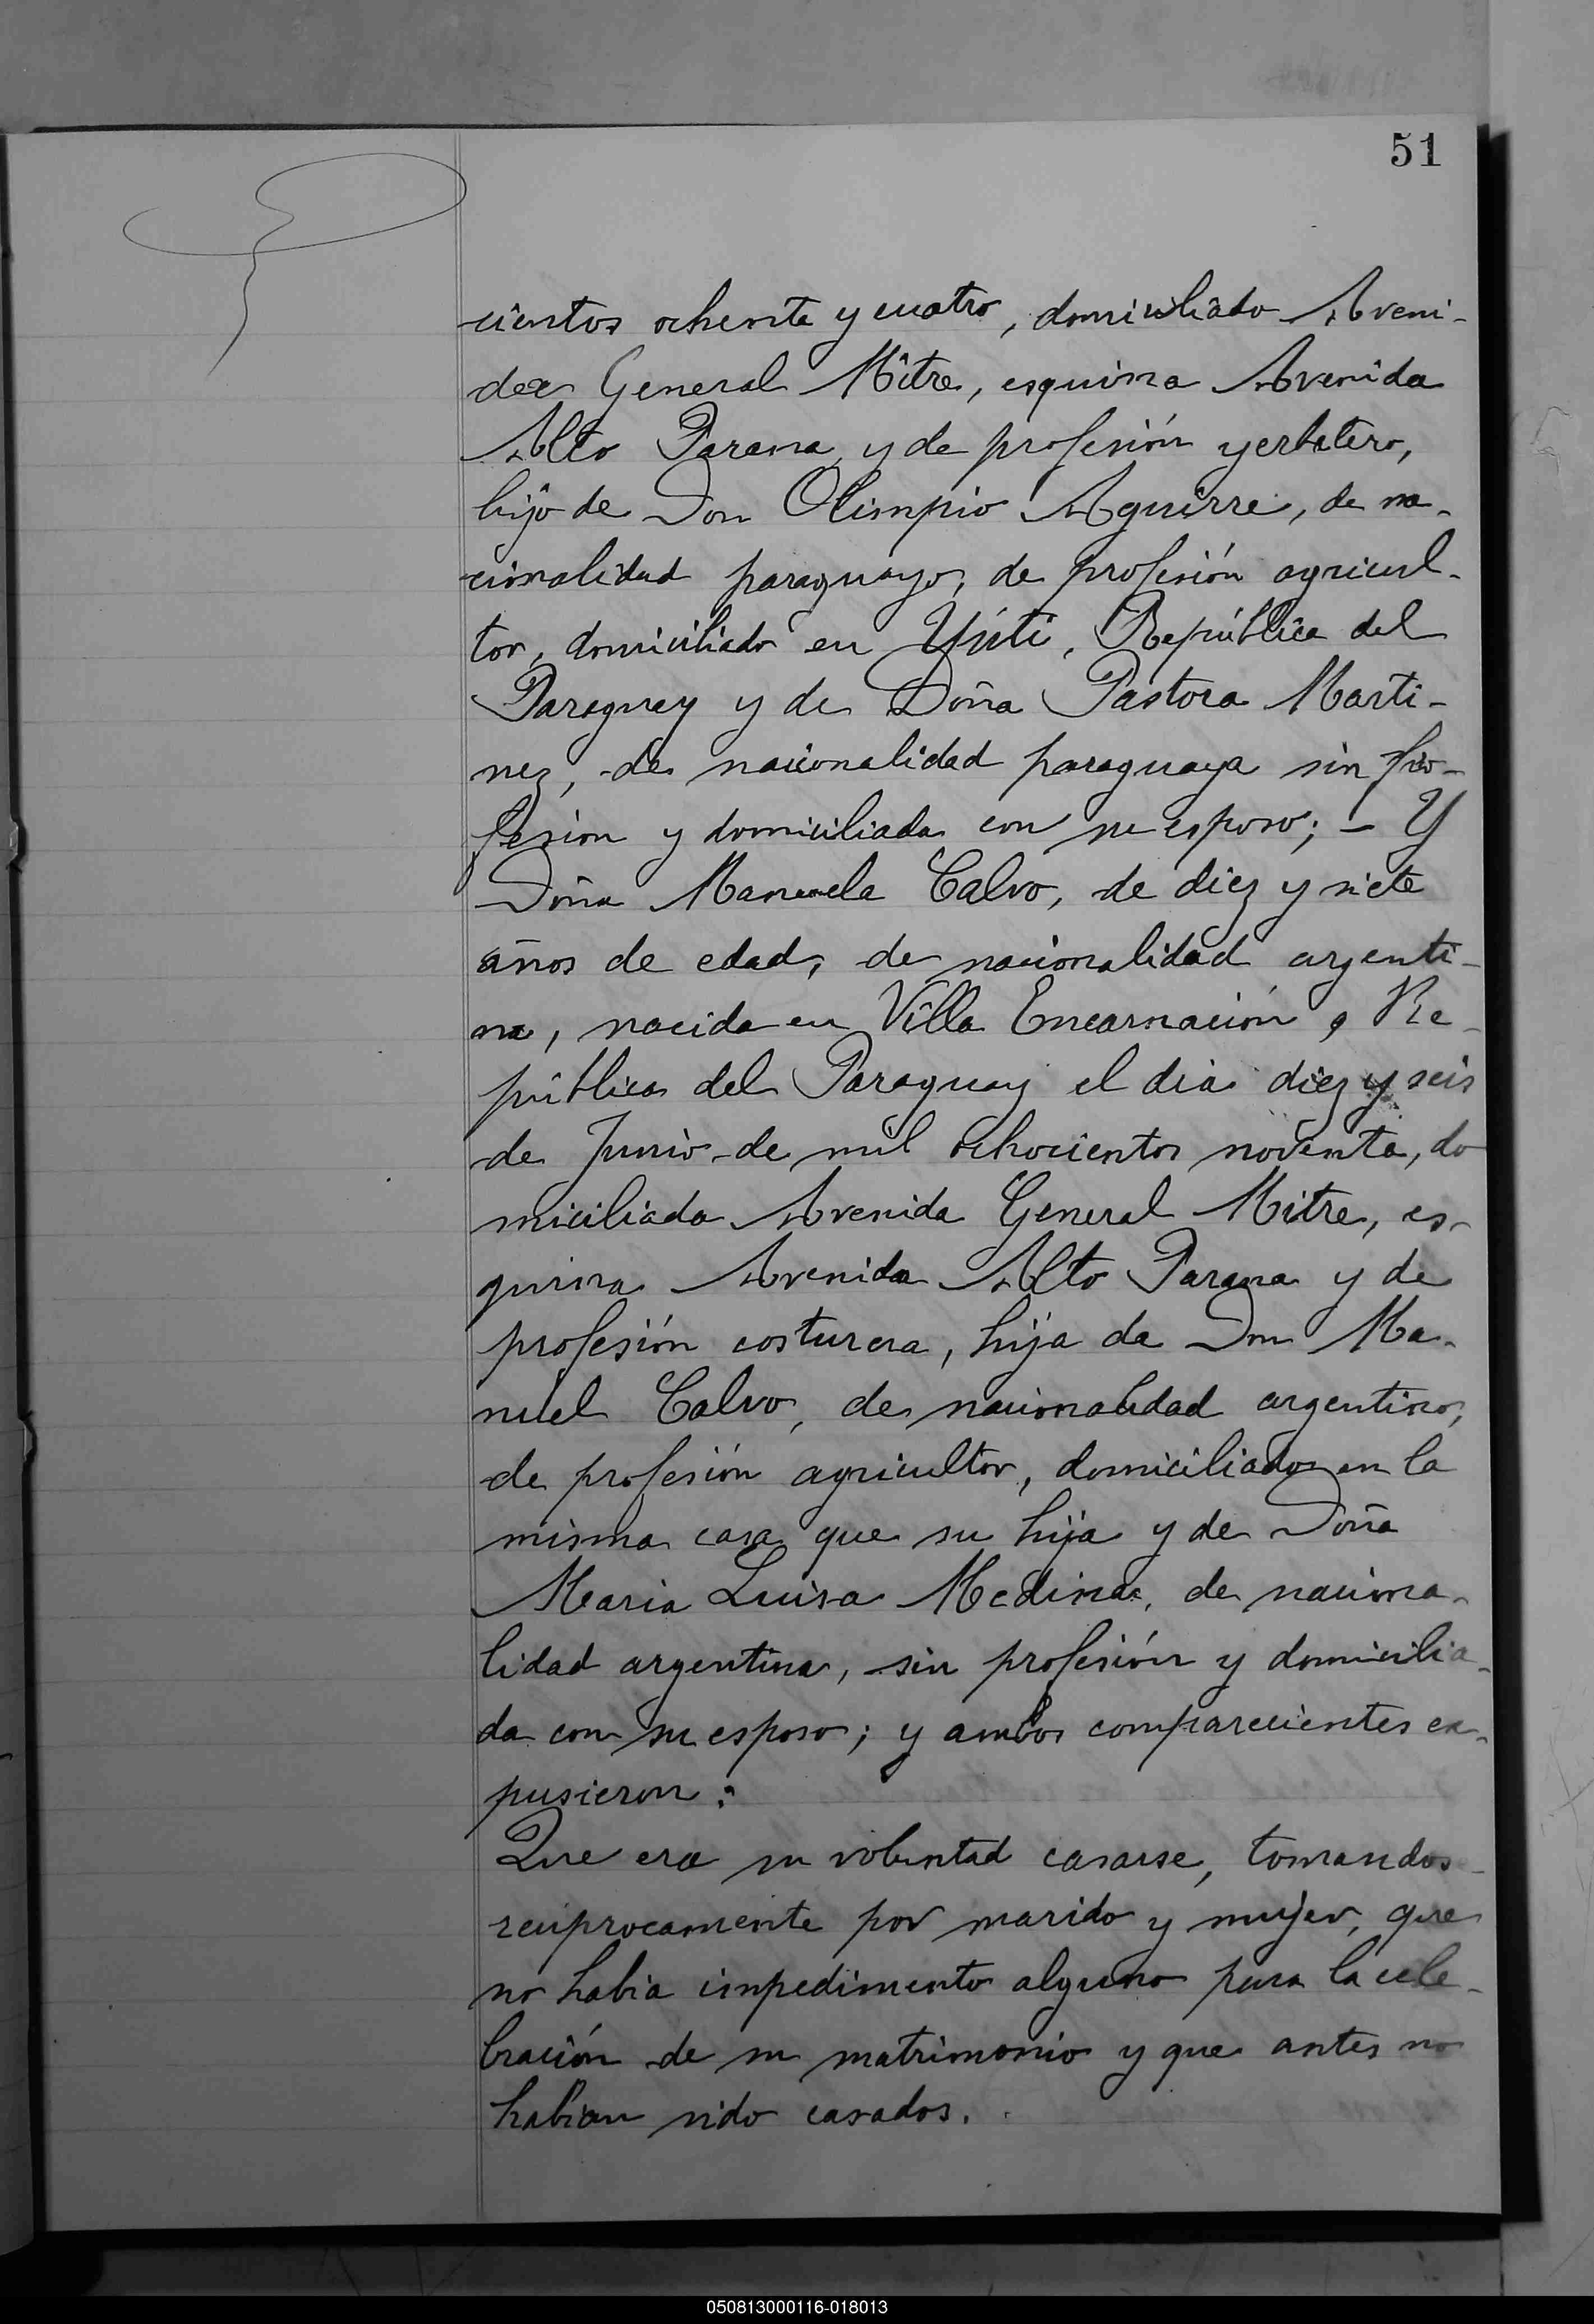 51
cientos ochenta y cuatro, domiciliado Aveni-
da General Mitre, esquina Avenida
Alto Parana, y de profesión yerbatero,
hijo de Don Olimpio Aguirre, de na-
cionalidad paraguayo, de profesión agricul-
tor, domiciliado en Yuti, República del
Paraguay y de Doña Pastora Marti-
nez, de nacionalidad paraguaya sin pro-
fesion y domiciliada con su esposo; - Y
Doña Manuela Calvo, de diez y siete
años de edad, de nacionalidad argenti-
na, nacida en Villa Encarnación, Re-
pública del Paraguay el dia diez y seis
de Junio de mil ochocientos noventa, do
miciliada Avenida General Mitre, es-
quina Avenida Alto Parana y de
profesión costurera, hija de Don Ma-
nuel Calvo, de nacionalidad argentino,
de profesión agricultor, domiciliado en la
misma casa que su hija y de Doña
Maria Luisa Medina, de naciona-
lidad argentina, sin profesión y domicilia-
da con su esposo; y ambos comparecientes ex-
pusieron:
Que era su voluntad casarse, tomandose
reciprocamente por marido y mujer, que
no habia impedimento alguno para la cele-
bración de su matrimonio y que antes no
habian sido casados.
050813000116-018013